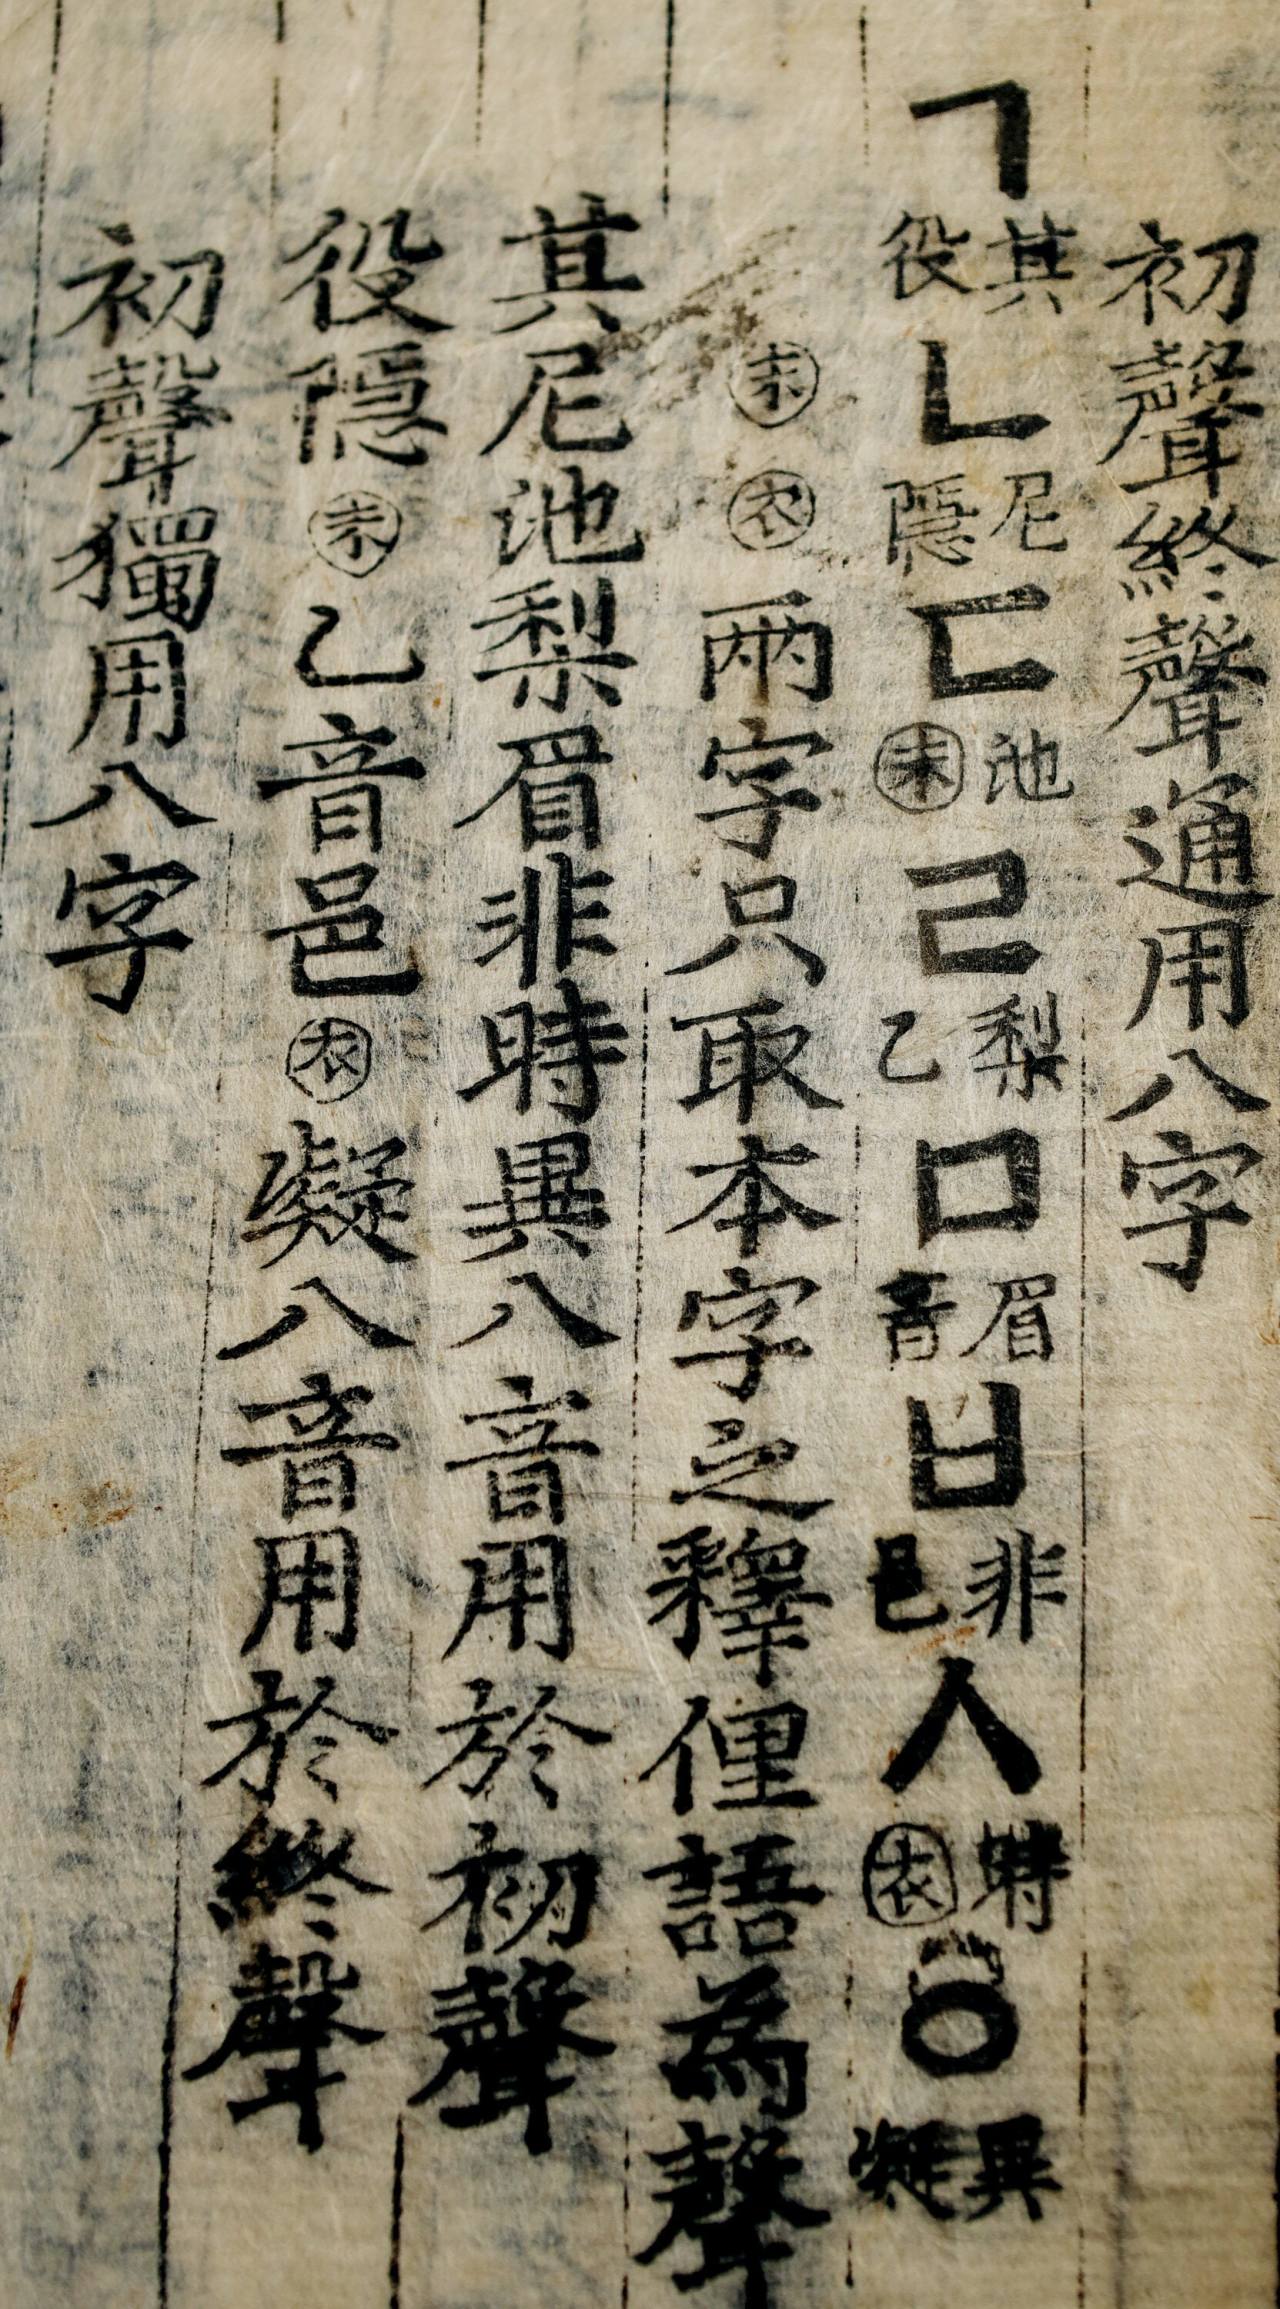 初聲終聲通用八字
ㄱ其役ㄴ尼隱ㄷ池㊒ㄹ梨乙ㅁ眉音ㅂ非邑ㅅ時衣ㆁ異凝
末衣兩字只取本字之釋俚語為聲
其尼池梨眉非時異八音用於初聲
役隱末乙音邑衣凝八音用於終聲
初聲獨用八字